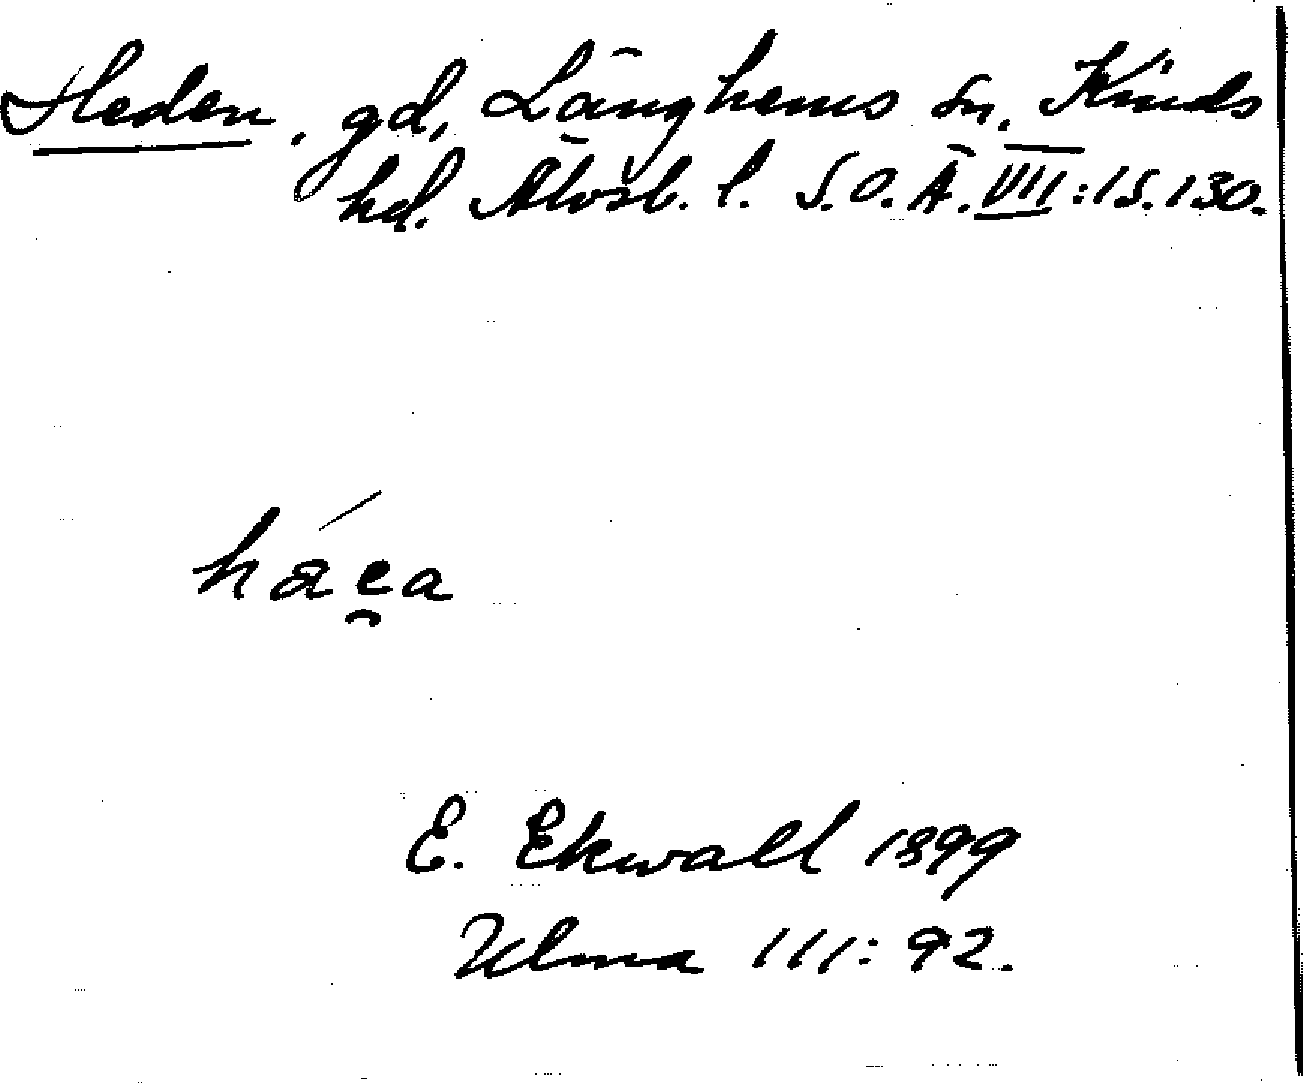 Heden, gd, Länghems sn, Kinds
hd. Älvsb. l. S.O.Ä. VII:1 S. 130.
E. Ekwall 1899
Ulma 111:92.